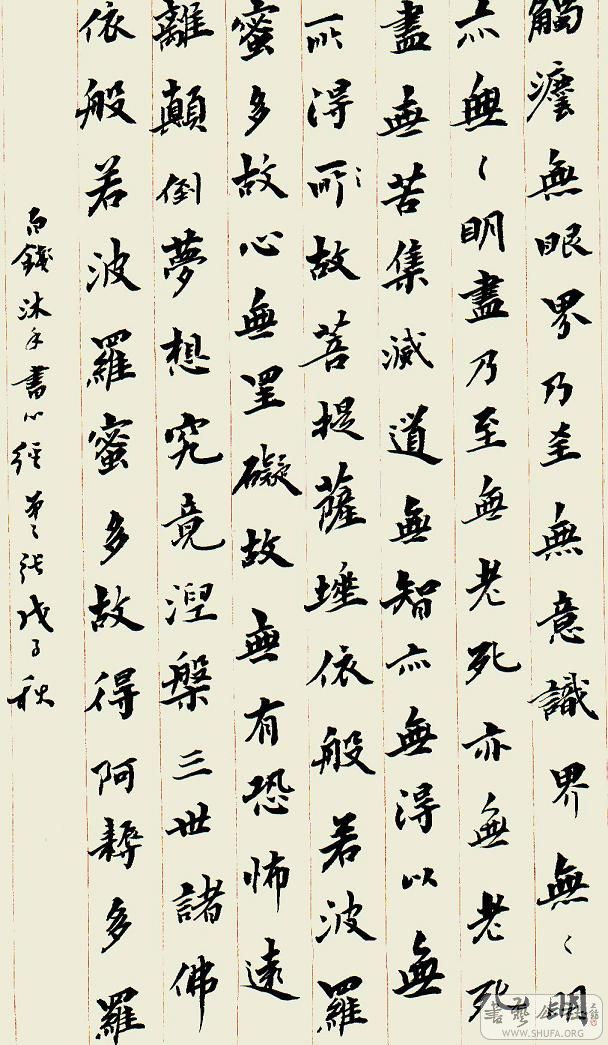 觸灋無眼界乃至無意識界無〻明
亦無〻明盡乃至無老死亦無老死
盡無苦集滅道無智亦無得以無
所得所〻故菩提薩埵依般若波羅
蜜多故心無罣礙故無有恐怖遠
離顛倒夢想究竟涅槃三世諸佛
依般若波羅蜜多故得阿耨多羅
沐手書心經第二張戊子秋
書藝公社
WWW.SHUFA.ORG